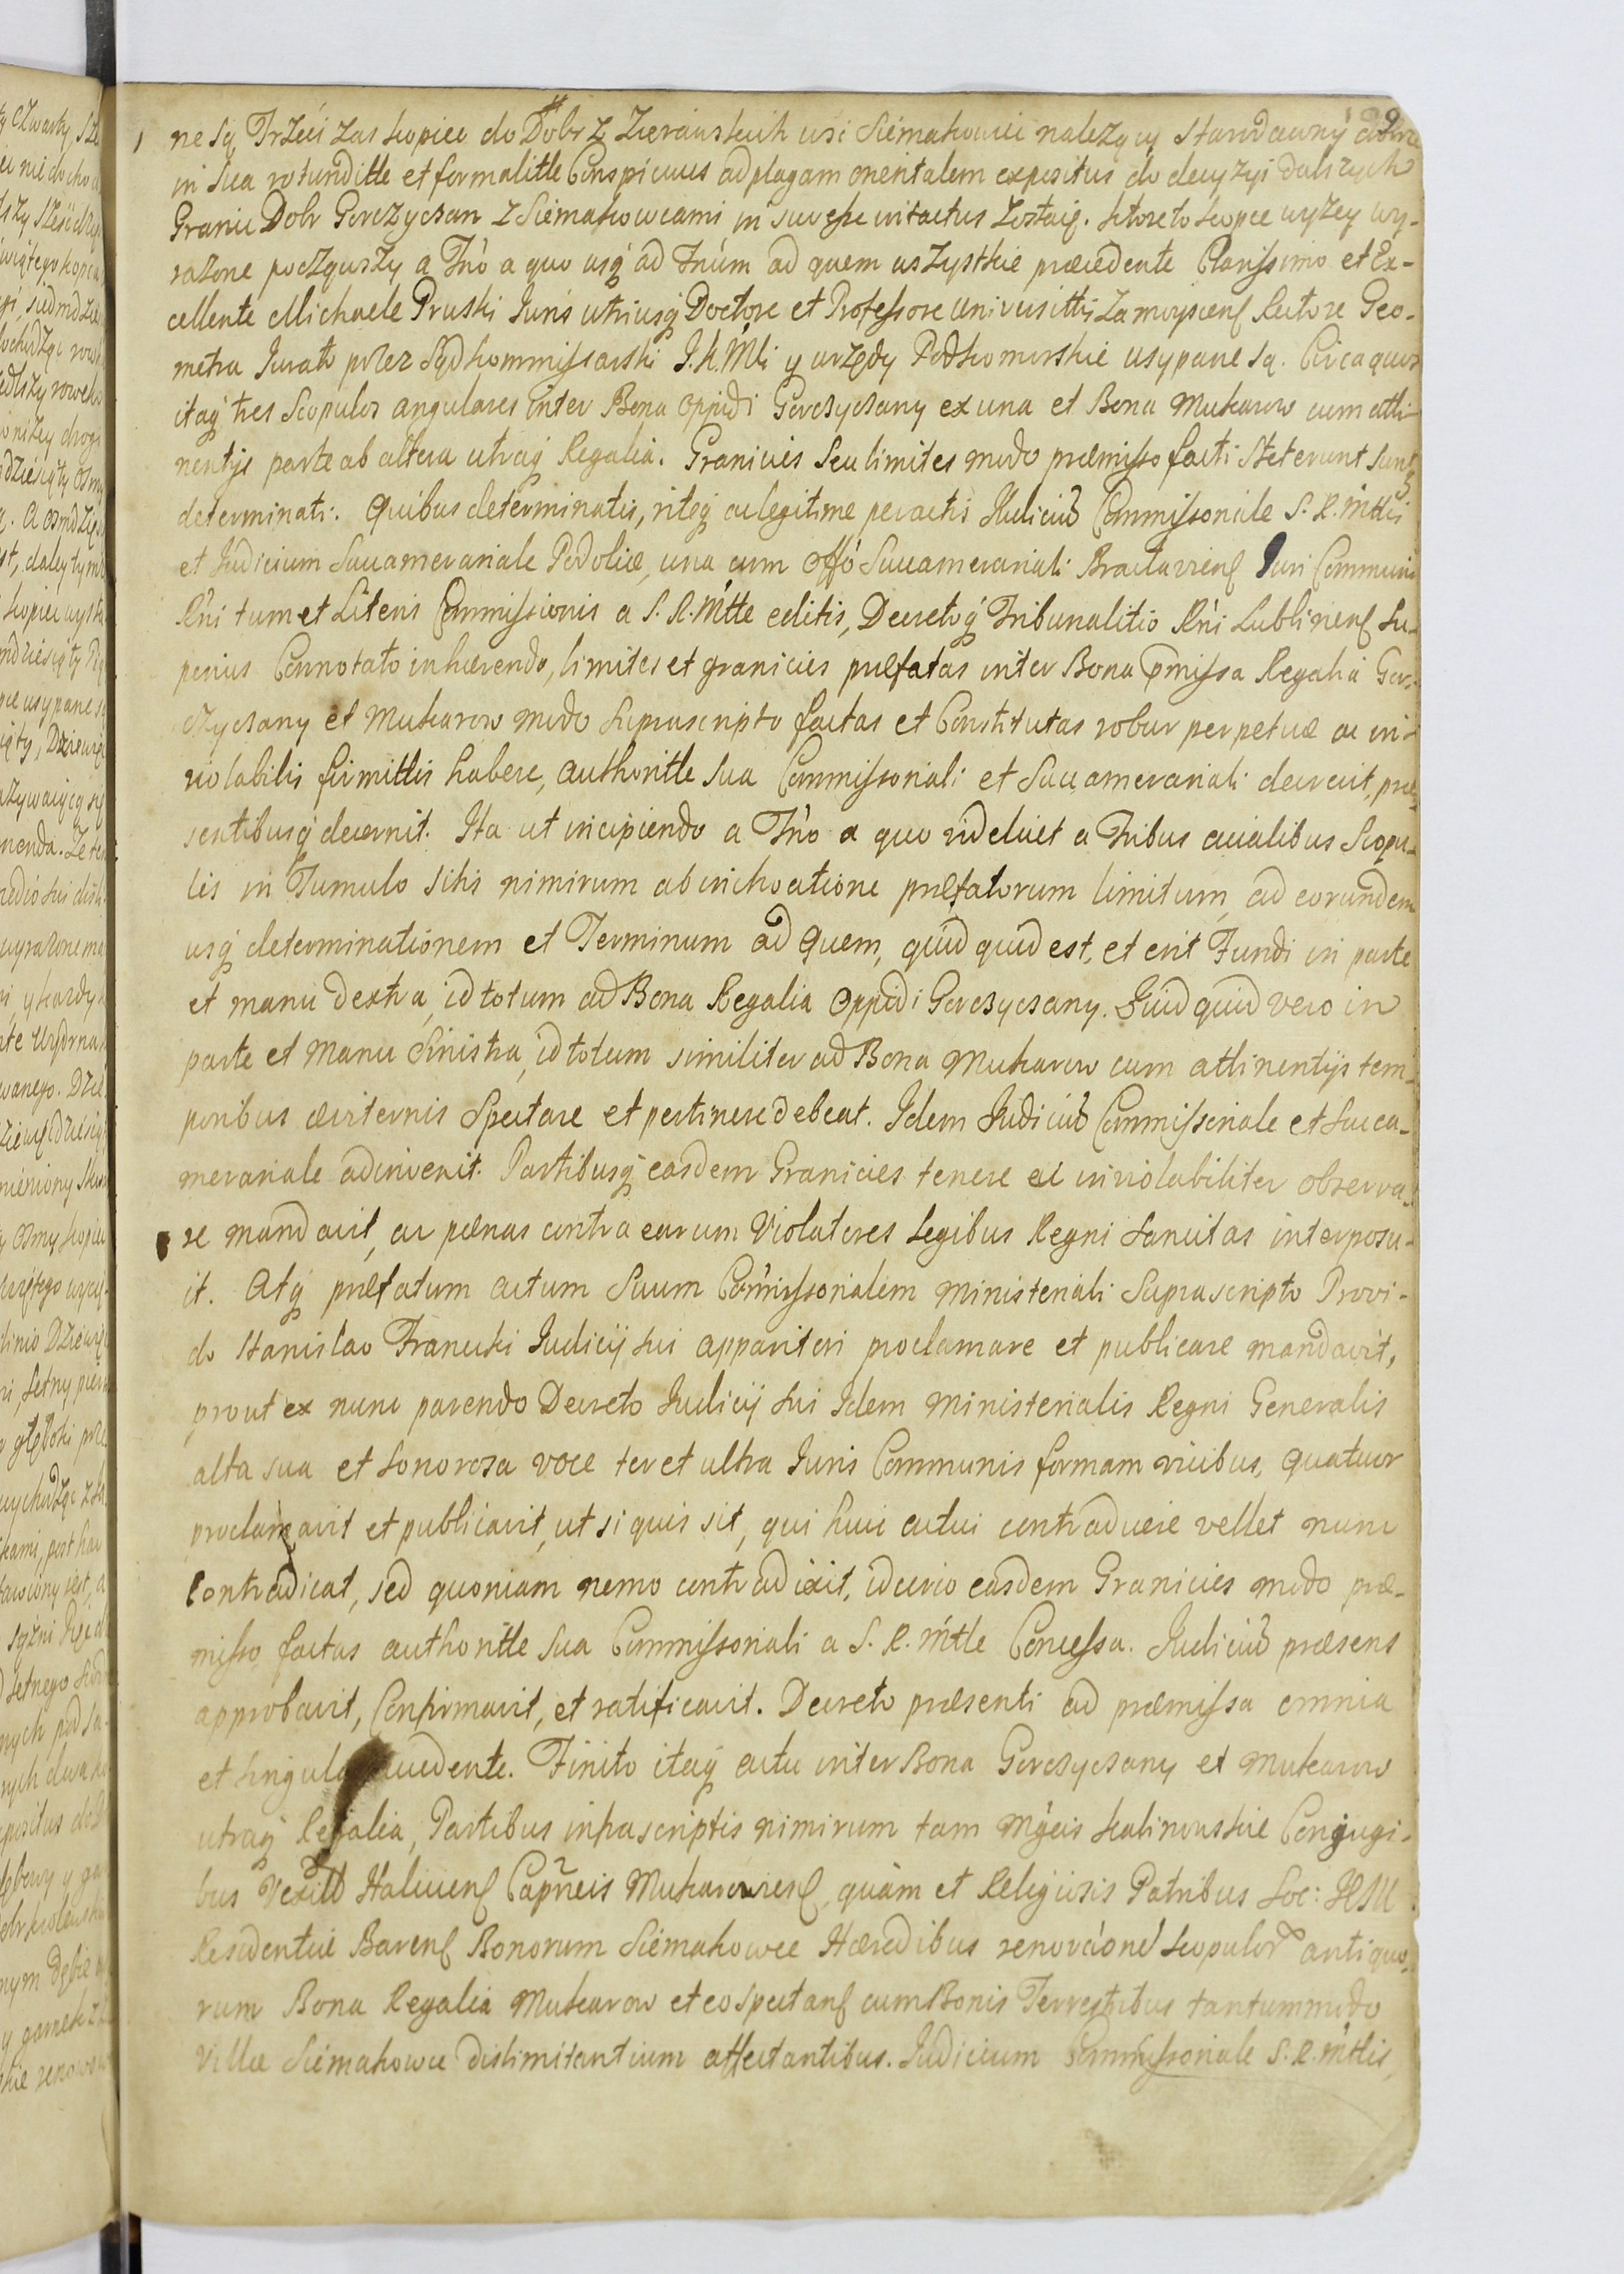 ne są, Trzeci zas kopiec do Dobr Z Zieranskich wsi Siemakowiec nalezący Starodawny adhuc
in sua rotunditte et formalitte Conspicuus ad plagam orientalem expositus do decyzyi dalszych
Granic Dobr Gorczyczan z Siemakowcami in suo esse intactus Zostaię. ktore to kopce wyżey wy-
rażone począwszy a Tno a quo usq ad Tnum ad quem wszystkie præcedente Clarissimo et Ex-
cellente Michaele Pruski Juris utriusq Doctore et Professore Universittis Zamoyscens Rectore Geo-
metra Jurato przez Sąd kommissarski J.K.Mci y urzędy Podkomorskie usypane są. Circa quos
itaq tres Scopulos angulares inter Bona Oppidi Gorczyczany ex una et Bona Mukarow cum atti-
nentijs parte ab altera utraq Regalia. Granicies seu limites modo præmisso facti steterunt suntq
determinati. Quibus determinatis, riteq ac legitime peractis Judiciu Commissoriale S. R. Mttis
et Judicium Succamerariale Podoliæ, una cum Offo Succamerariali Braclaviens Juri Communi
Rni tum et Literis Commissionis a S. R. Mtte editis, Decretoq Tribunalitio Rni Lublinens su-
perius Connotato inhærendo, limites et granicies præfatas inter Bona pmissa Regalia Gor-
czyczany et Mukarow modo suprascripto factas et Constitutas robur perpetuæ ac in-
violabilis firmittis habere, authoritte sua Commissoriali et Succamerariali decrevit, præ-
sentibusq decernit. Ita ut incipiendo a Tno a quo videlicet a Tribus acialibus Scopu-
lis in Tumulo sitis nimirum ab inchoatione præfatorum limitum, ad eorundem
usq determinationem et Terminum ad quem, quid quid est, et erit Fundi in parte
et manu dextra, id totum ad Bona Regalia Oppidi Gorczyczany. Quid quid vero in
parte et Manu Sinistra, id totum similiter ad Bona Mukarow cum attinentijs tem-
poribus æviternis Spectare et pertinere debeat. Idem Judiciu Commissoriale et Succa-
merariale adinvenit. Partibusq easdem Granicies tenere ac inviolabiliter observa-
re mandavit, ac pænas contra earum Violatores Legibus Regni sancitas interposu-
it. Atq præfatum actum Suum Comissorialem Ministeriali Suprascripto Provi-
do Stanislao Franucki Judicij sui apparitori proclamare et publicare mandavit,
prout ex nunc parendo Decreto Judicij sui Idem Ministerialis Regni Generalis
alta sua et sonorosa voce ter et ultra Juris Communis formam vicibus, quatuor
proclamavit et publicavit, ut si quis sit, qui huic actui contradicere vellet nunc
Contradicat, sed quoniam nemo contradixit, idcirco easdem Granicies modo præ-
misso factas authoritte sua Commissoriali a S. R. Mtte Concessa. Judiciu præsens
approbavit, Confirmavit, et ratificavit. Decreto præsenti ad præmissa omnia
et singula accedente. Finito itaq actu inter Bona Gorczyczany et Mukarow
utraq Regalia, Partibus infrascriptis nimirum tam Mgcis Kalinowskie Conjugi-
bus Vexill Haliciens Capneis Mukarowiens, quàm et Religiosis Patribus Soc:
Residentiæ Barens Bonorum Siemakowce Hæredibus renovaone scopulor antiquo-
rum Bona Regalia Mukarow et eo spectans cum Bonis Terrestribus tantummodo
Villæ Siemakowce dislimitantium affectantibus. Judicium Commissoriale S. R. Mttis,